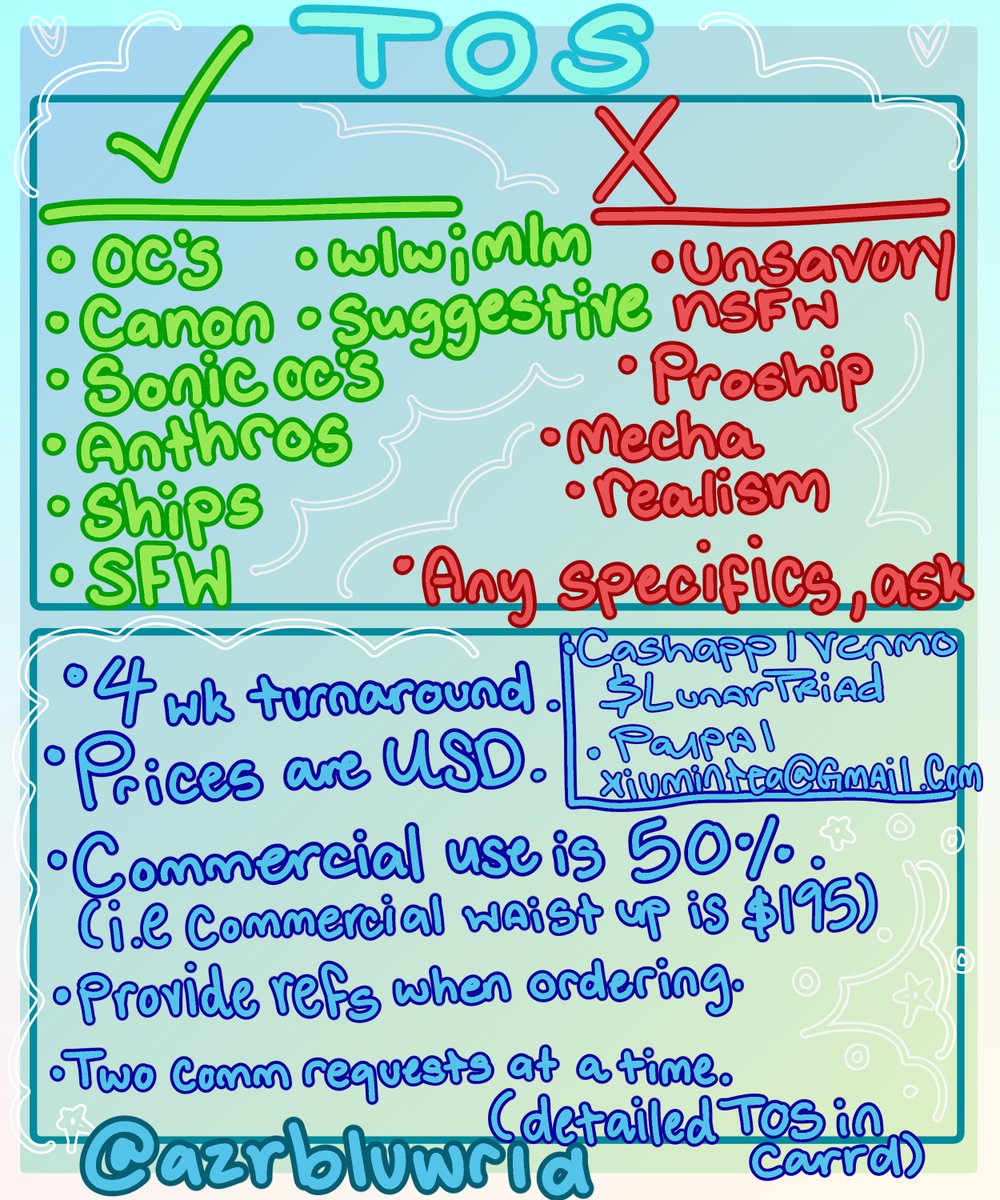 TOS
✓
X
• OC's
• Canon
• Sonic OC's
• Anthros
• Ships
• SFW
• wlw; mlm
• Suggestive
• Unsavory
NSFW
• Proship
• Mecha
• realism
• Any specifics, ask
• 4 wk turnaround.
• Prices are USD.
• Cashapp | Venmo
$LunarTRiAd
• PayPAl
xiumintea@GMAil.Com
• Commercial use is 50%.
(i.e Commercial waist up is $195)
• Provide refs when ordering.
• Two comm requests at a time.
(detailed TOS in
carrd)
@azrbluwrld